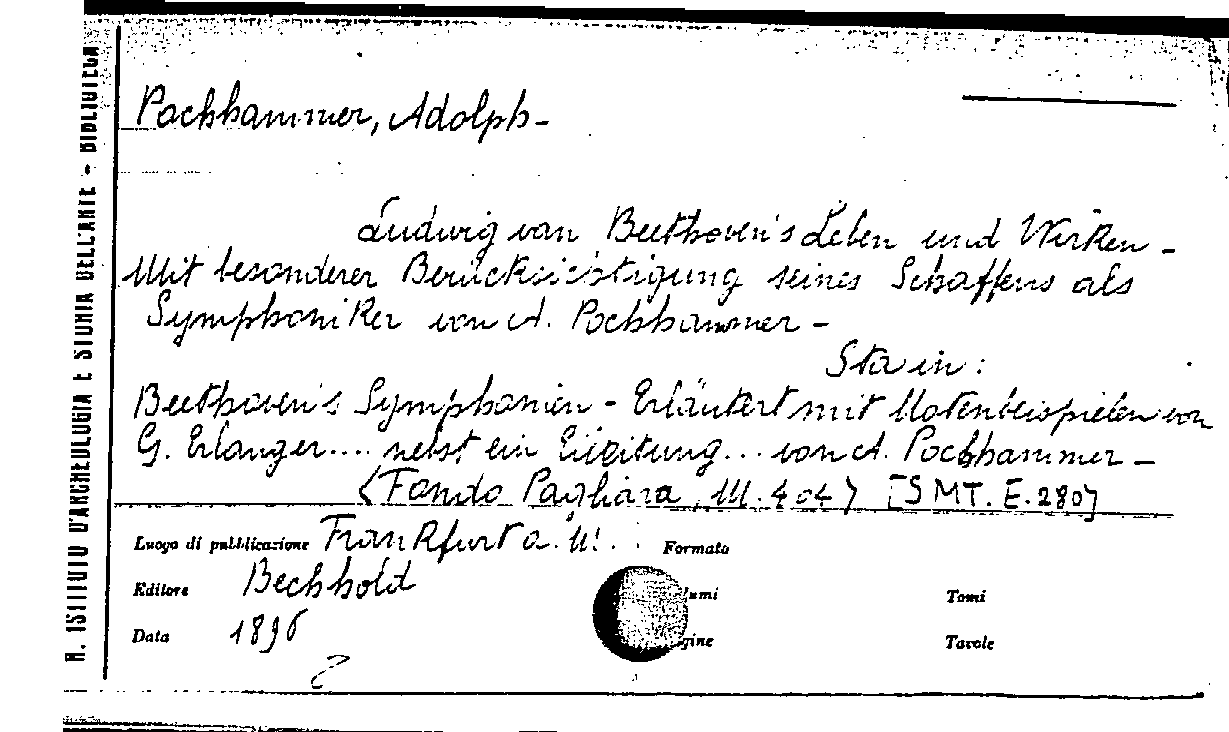 R. ISTITUTO D'ARCHEOLOGIA E STORIA DELL'ARTE - BIBLIOTECA
Pochhammer, Adolph-
Ludwig van Beethoven's Leben und Wirken -
Mit besonderer Berücksichtigung seines Schaffens als
Symphoniker von A. Pochhammer -
Sta in:
Beethoven's Symphonien - Erläutert mit Notenbeispielen von
G. Erlanger.... nebst ein Eileitung... von A. Pochhammer -
(Fondo Pagliara, M. 404) [SMT. E. 280]
Luogo di pubblicazione Frankfurt a. M. . . Formato
Editore Bechhold umi Tomi
Data 1896 gine Tavole